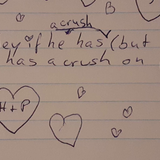 a crush
ey if he has (but
has a crush on
H+P